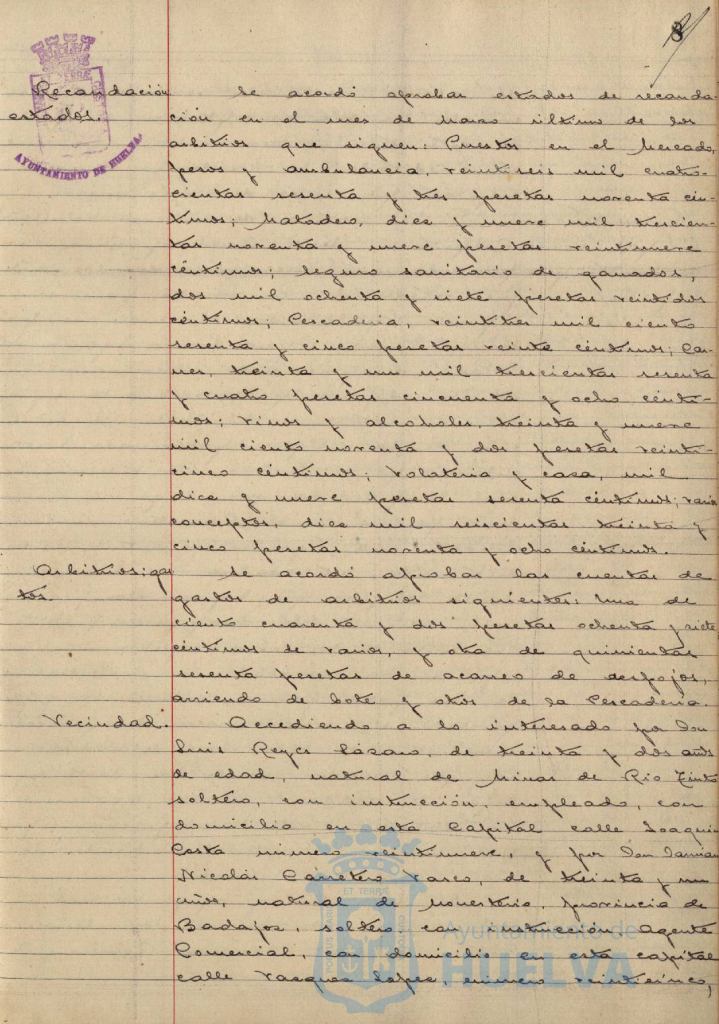 8
Recaudación
estados.
AYUNTAMIENTO DE HUELVA.
Se acordó aprobar estados de recauda-
ción en el mes de Marzo último de los
arbitrios que siguen: Puestos en el Mercado,
pesos y ambulancia, veintiseis mil cuatro-
cientas sesenta y tres pesetas noventa cén-
timos; Matadero, diez y nueve mil trescien-
tas noventa y nueve pesetas veintinueve
céntimos; Seguro sanitario de ganados,
dos mil ochenta y siete pesetas veintidos
céntimos; Pescaderia, veintitres mil ciento
sesenta y cinco pesetas veinte céntimos; Car-
nes, treinta y un mil trescientas sesenta
y cuatro pesetas cincuenta y ocho cénti-
mos; vinos y alcoholes, treinta y nueve
mil ciento noventa y dos pesetas veinti-
cinco céntimos; volateria y caza, mil
diez y nueve pesetas sesenta céntimos; varios
conceptos, diez mil seiscientas treinta y
cinco pesetas noventa y ocho céntimos.
Arbitrios: gas
tos.
Se acordó aprobar las cuentas de
gastos de arbitrios siguientes: Una de
ciento cuarenta y dos pesetas ochenta y siete
céntimos de varios, y otra de quinientas
sesenta pesetas de acarreo de despojos,
arriendo de bote y otros de la Pescaderia.
Vecindad.
Accediendo a lo interesado por Don
Luis Reyes Lázaro, de treinta y dos años
de edad, natural de Minas de Rio Tinto
soltero, con instrucción, empleado, con
domicilio en esta Capital calle Joaquin
Costa número veintinueve, y por Don Damian
Nicolás Carretero Vasco, de treinta y un
años, natural de Monesterio, provincia de
Badajoz, soltero, con instrucción Agente
Comercial, con domicilio en esta capital
calle Vazquez Lopez, número veinticinco,
Ayuntamiento de
HUELVA